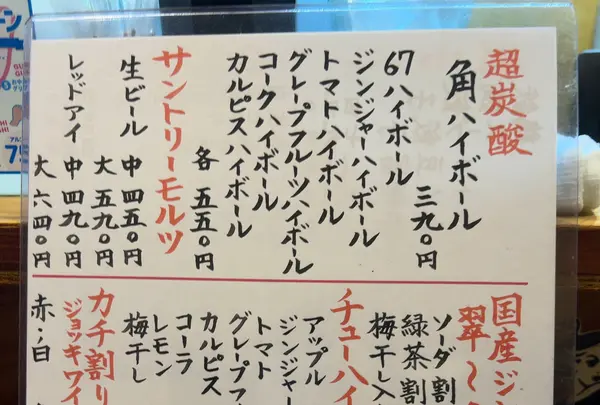 超炭酸
角ハイボール
三九〇円
67ハイボール
ジンジャーハイボール
トマトハイボール
グレープフルーツハイボール
コークハイボール
カルピスハイボール
各 五五〇円
サントリーモルツ
生ビール 中 四五〇円
大 五九〇円
レッドアイ 中 四九〇円
大 六四〇円
国産ジン
翠〜
ソーダ割
緑茶割
梅干し入
チューハイ
アップル
ジンジャー
トマト
グレープフ
カルピス
コーラ
レモン
梅干し
カチ割り
ジョッキワイ
赤・白